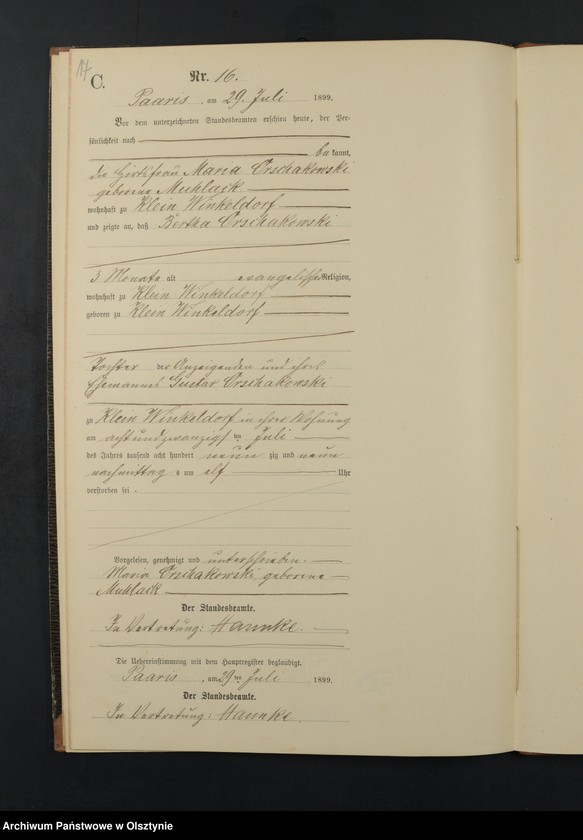 17
C.
Nr. 16.
Paaris, am 29. Juli 1899.
Vor dem unterzeichneten Standesbeamten erschien heute, der Per-
sönlichkeit nach
be kannt,
die Wirtsfrau Maria Orschakowski
geborene Muhlack
wohnhaft zu Klein Winkeldorf
und zeigte an, daß Bertha Orschakowski
3 Monate alt evangelischer Religion,
wohnhaft zu Klein Winkeldorf
geboren zu Klein Winkeldorf
Tochter der Anzeigenden und ihres
Ehemannes Gustav Orschakowski
zu Klein Winkeldorf in ihrer Wohnung
am achtundzwanzigsten Juli
des Jahres tausend acht hundert neun zig und neun
nachmittag s um elf Uhr
verstorben sei.
Vorgelesen, genehmigt und unterschrieben.
Maria Orschakowski, geborene
Muhlack
Der Standesbeamte.
In Vertretung: Hannke.
Die Uebereinstimmung mit dem Hauptregister beglaubigt.
Paaris, am 29ten Juli 1899.
Der Standesbeamte.
In Vertretung: Hannke.
Archiwum Państwowe w Olsztynie